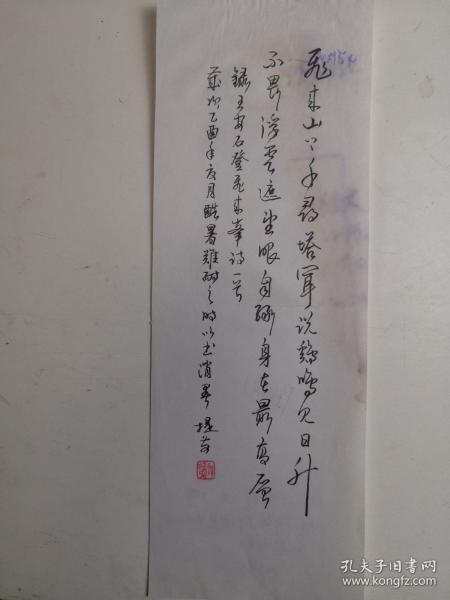 飛來山上千尋塔聞說鷄鳴見日升
不畏浮雲遮望眼自緣身在最高層
錄王安石登飛來峯詩一首
歲次乙酉年夏月酷暑難耐之時以書消暑
孔夫子旧书网
www.kongfz.com